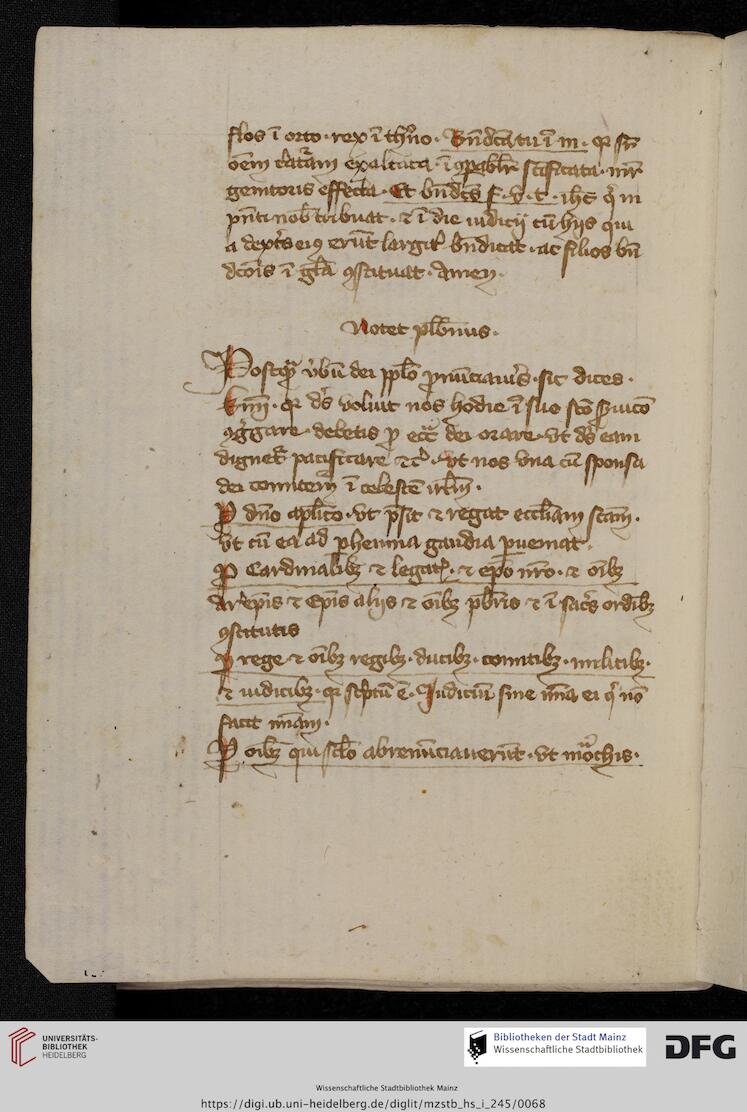 flos ī orto · rex ī thͦno · Bn̄dc̄ta tu ī m · qr sr̄
oēm c̄aturam exaltata · ī ꝯpabil̄r scīficata · mr̄
genitoris effecta · Et bn̄dcs̄ f · v · t · ihc̄ qͥ in
pn̄ti nob̄ tribuat · ⁊ ī die iudicij cū hijs qui
a dext͛s eiꝰ erūt largit͛ bn̄dicat · ac filios bn̄
dcōis ī gl̄a ꝯstituat · Amen ·
Notet plb̄nus ·
Postqᷓ v͛bū dei pplo pronūciaueris · sic dices ·
kmī · qr ds̄ voluit nos hodie ī suo scō s͛uicō
ꝯgͤgare · debetis ꝓ ecc̄a dei orare · vt ds̄ eam
dignet᷑ pacificare ⁊c̄ · vt nos vna cū sponsa
dei comitem᷑ ī celestē irl̄m ·
P dn̄o aplico · vt p̄sit ⁊ regat eccl̄iam scām ·
vt cū ea ad phenna gaudia ꝑueniat ·
P Cardinalibꝫ ⁊ legat͛ · ⁊ ep̄o nr̄o · ⁊ oībꝫ
Archiep̄is ⁊ Ep̄is alijs ⁊ oībꝫ pb̄ris ⁊ ī sac͛s ordībꝫ
ꝯstitutis
P rege ⁊ oībꝫ regibꝫ · ducibꝫ · comitibꝫ · militibꝫ ·
⁊ iudicibꝫ · qr sc̄ptū ē · Iudiciū sine mīa ei qͥ nō
facit mīam ·
P oībꝫ qui sc̄lo abrenūciauerūt · vt moᷓchis ·
UNIVERSITÄTS-
BIBLIOTHEK
HEIDELBERG
Bibliotheken der Stadt Mainz
Wissenschaftliche Stadtbibliothek
DFG
Wissenschaftliche Stadtbibliothek Mainz
https://digi.ub.uni-heidelberg.de/diglit/mzstb_hs_i_245/0068